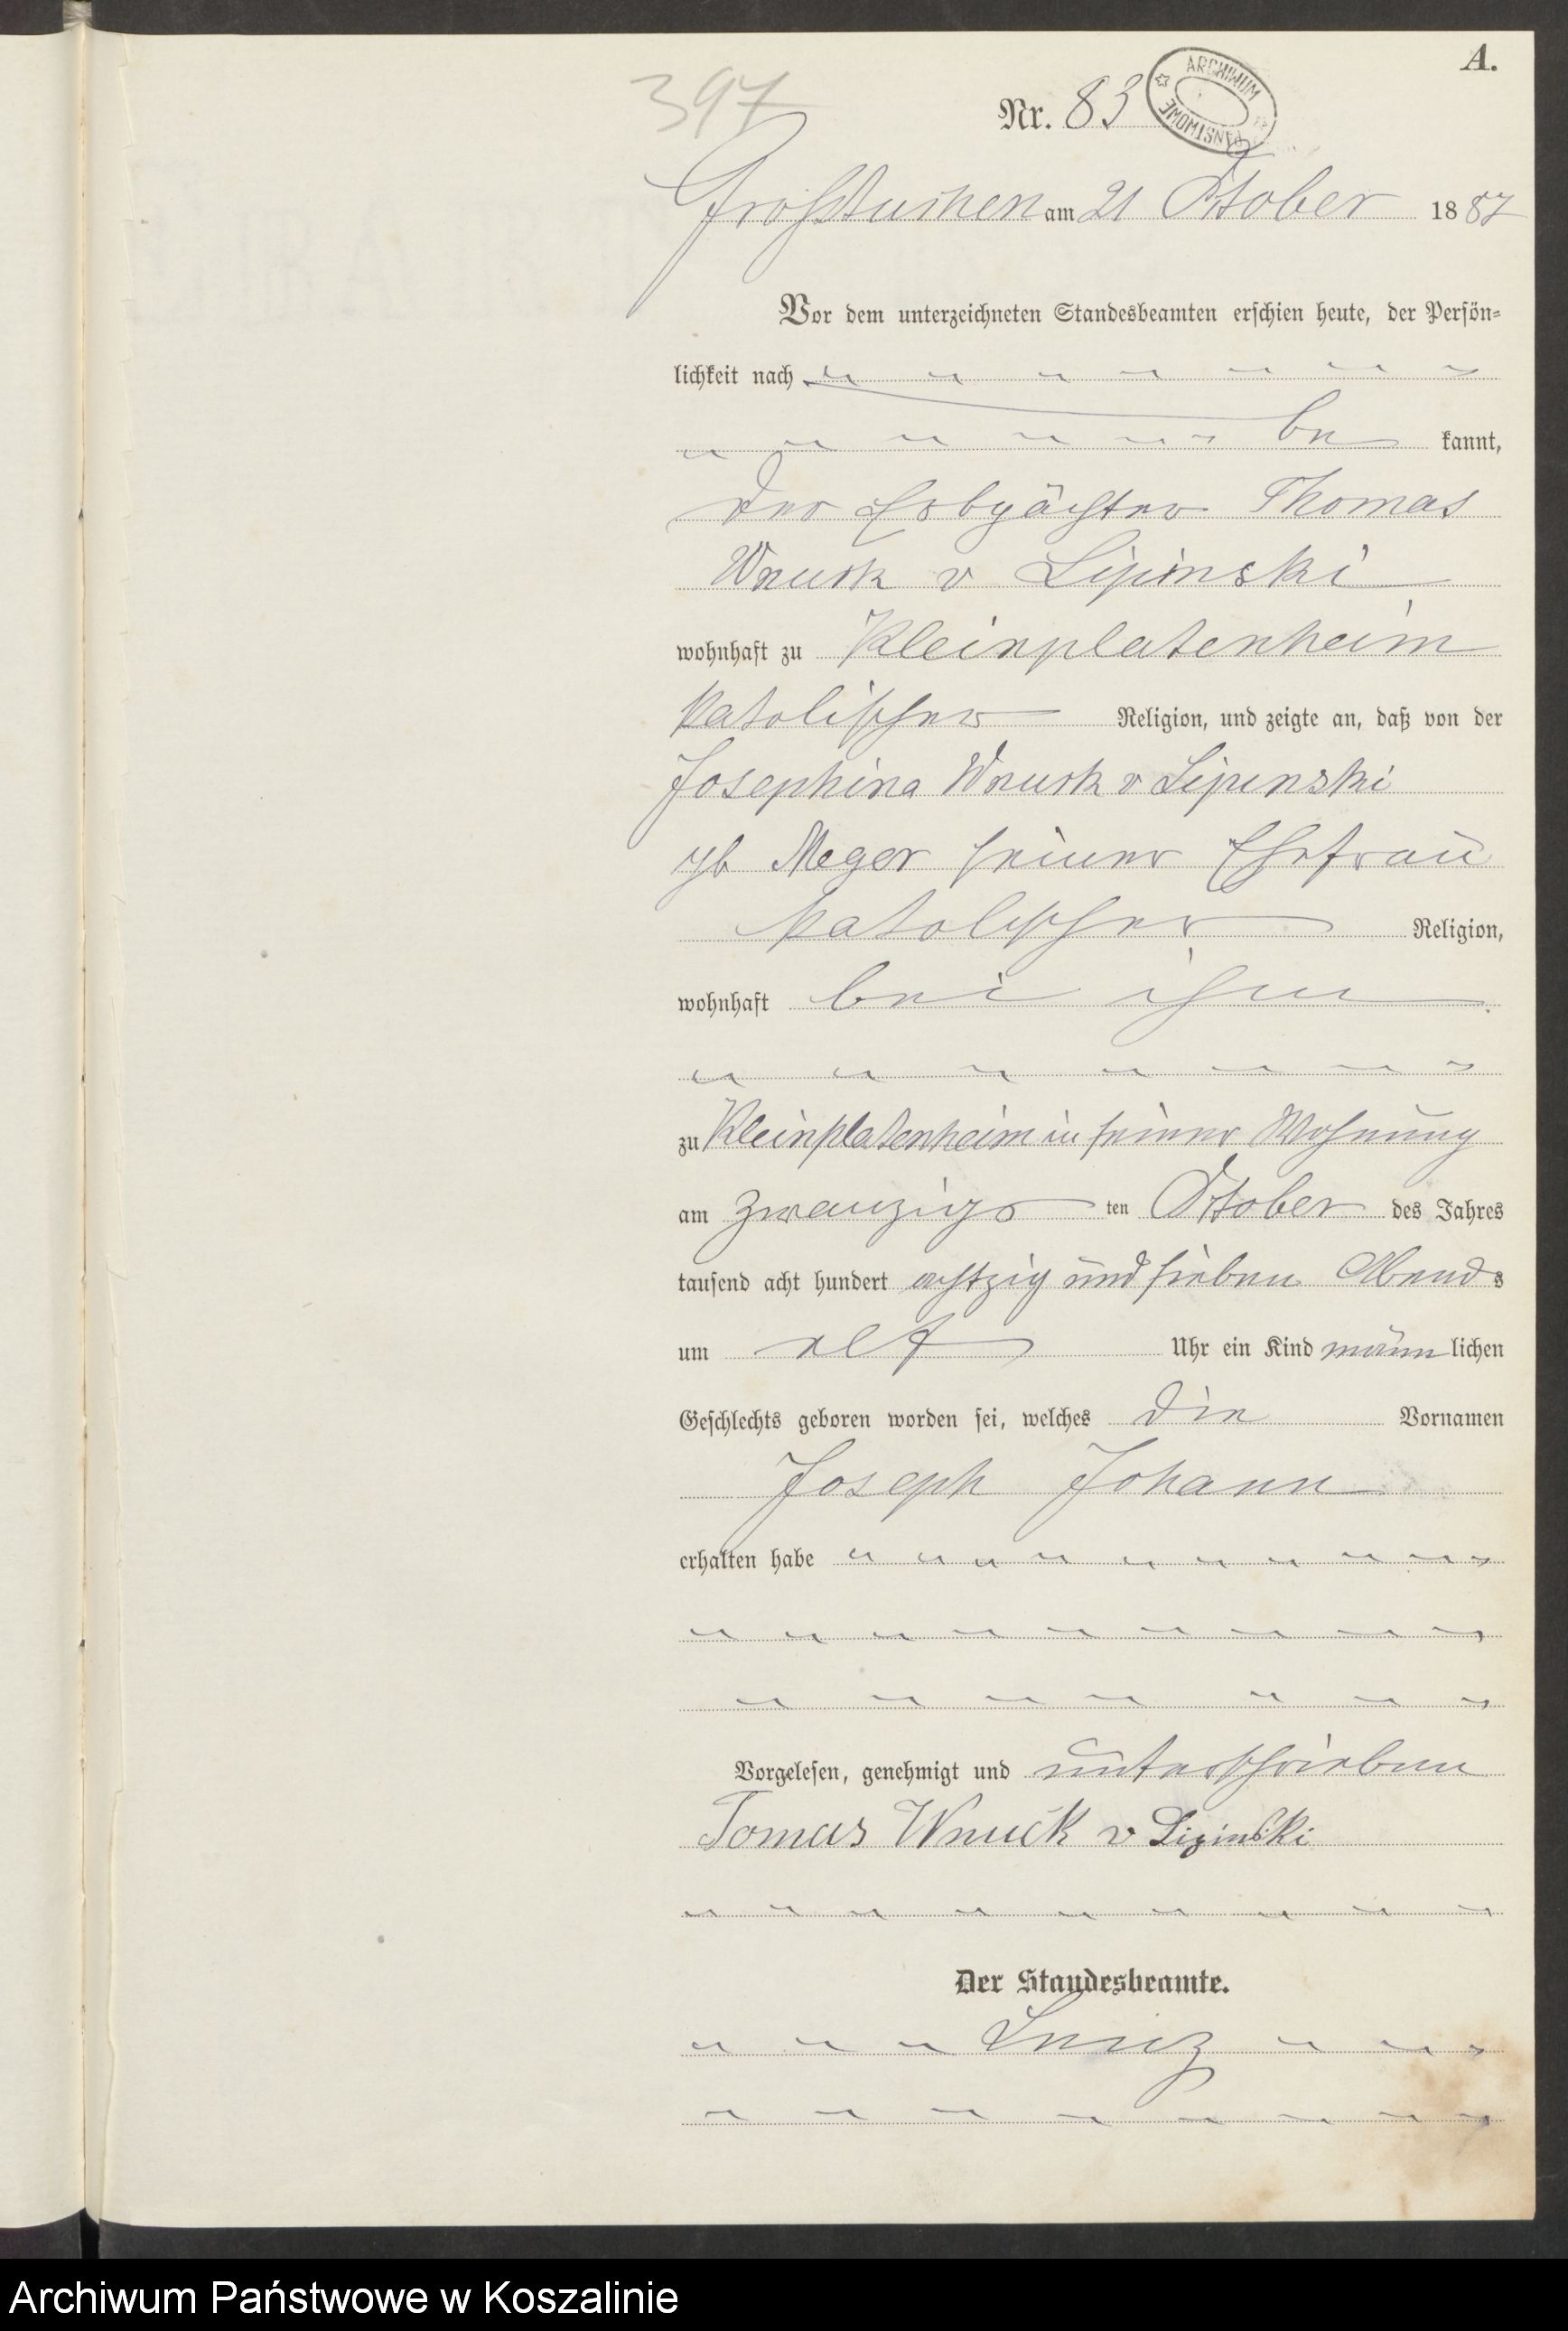 A.
397
Nr. 83
ARCHIWUM PAŃSTWOWE
Großtuchen am 21 October 1887
Vor dem unterzeichneten Standesbeamten erschien heute, der Persön-
lichkeit nach
be kannt,
der Erbpächter Thomas
Wnuck v Lipinski
wohnhaft zu Kleinplatenheim
katolischer Religion, und zeigte an, daß von der
Josephina Wnuck v Lipinski
gb Meger seiner Ehefrau
katolischer Religion,
wohnhaft bei ihm
zu Kleinplatenheim in seiner Wohnung
am zwanzigs ten October des Jahres
tausend acht hundert achtzig und sieben Abends
um elf Uhr ein Kind männ lichen
Geschlechts geboren worden sei, welches die Vornamen
Joseph Johann
erhalten habe
Vorgelesen, genehmigt und unterschrieben
Tomas Wnuck v Lipinski
Der Standesbeamte.
Archiwum Państwowe w Koszalinie